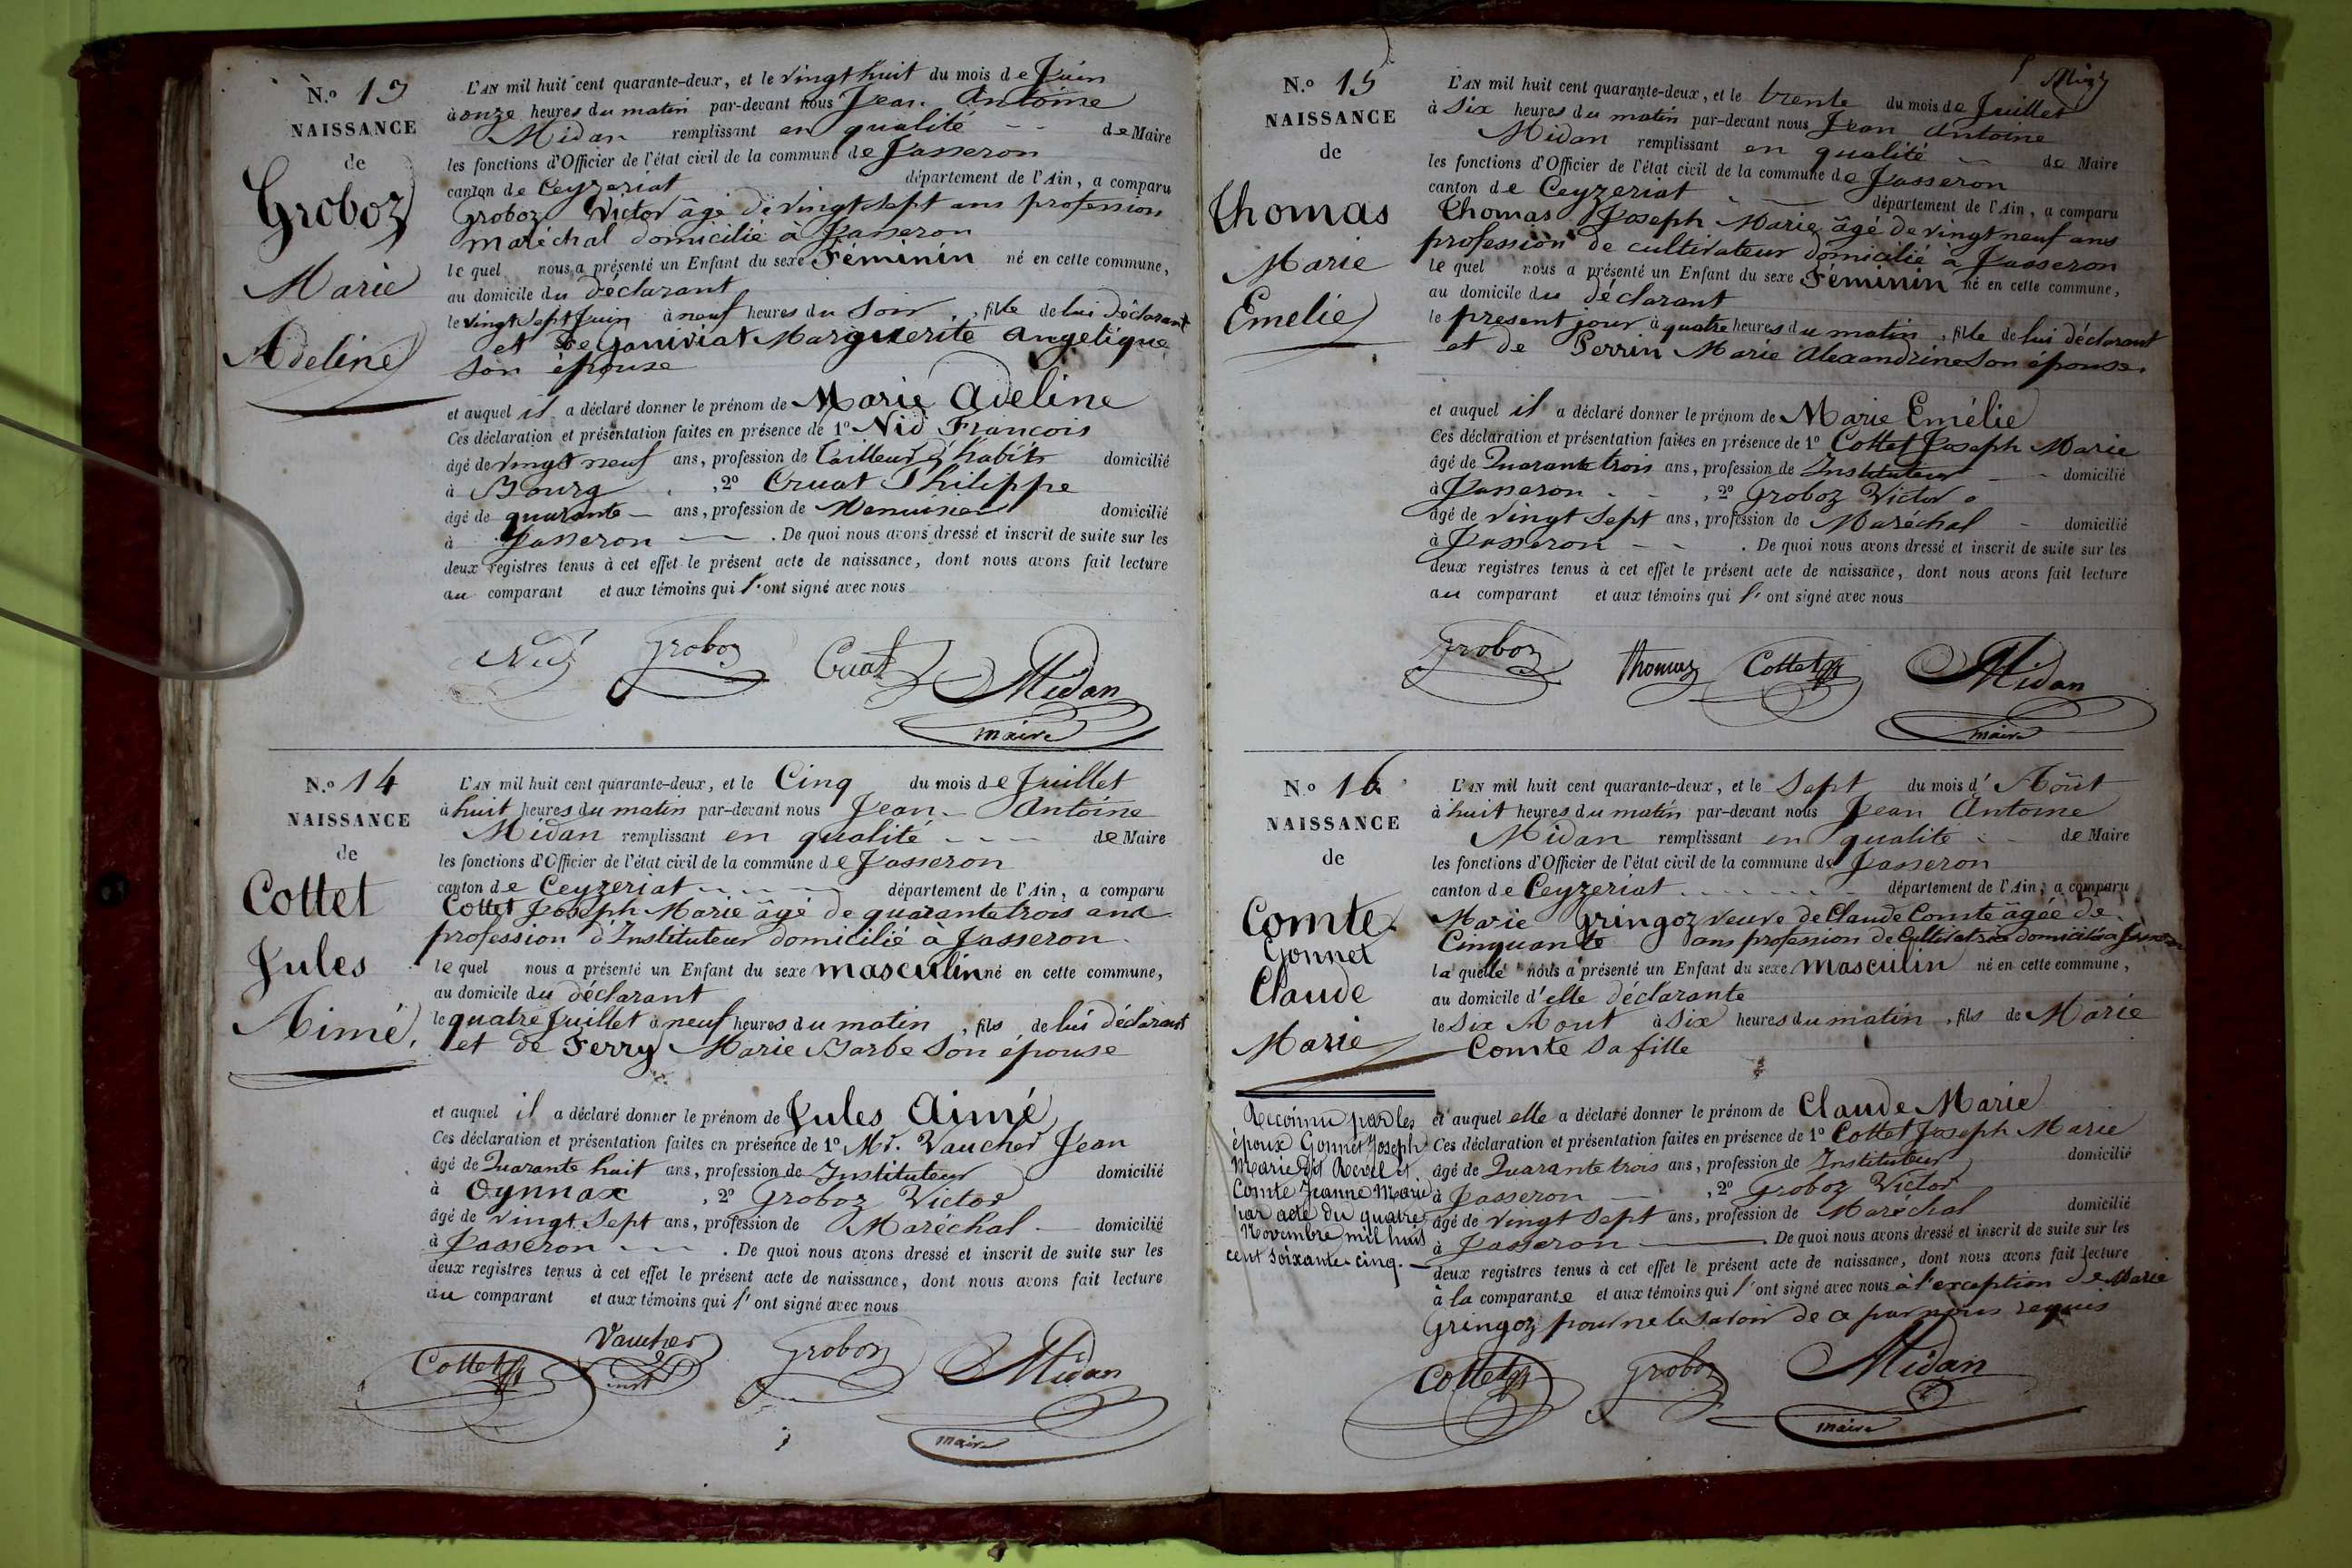 N.º 13
NAISSANCE
de
Groboz
Marie
Adeline
L'AN mil huit cent quarante-deux, et le vingt huit du mois de Juin
à onze heures du matin par-devant nous Jean Antoine
Midan remplissant en qualité de Maire
les fonctions d'Officier de l'état civil de la commune de Jasseron
canton de Ceyzeriat département de l'Ain, a comparu
Groboz Victor âgé de vingt sept ans profession
maréchal domicilié à Jasseron
le quel nous a présenté un Enfant du sexe Féminin né en cette commune,
au domicile du déclarant
le vingt sept Juin à neuf heures du soir, fille de lui déclarant
et de Marguerite Angélique
son épouse
et auquel il a déclaré donner le prénom de Marie Adeline
Ces déclaration et présentation faites en présence de 1º Nid François
âgé de vingt neuf ans, profession de tailleur d'habits domicilié
à Bourg, 2º Cruat Philippe
âgé de quarante ans, profession de Menuisier domicilié
à Jasseron. De quoi nous avons dressé et inscrit de suite sur les
deux registres tenus à cet effet le présent acte de naissance, dont nous avons fait lecture
au comparant et aux témoins qui l'ont signé avec nous
Nid Groboz Cruat Midan
maire
N.º 14
NAISSANCE
de
Cottet
Jules
Aimé.
L'AN mil huit cent quarante-deux, et le Cinq du mois de Juillet
à huit heures du matin par-devant nous Jean Antoine
Midan remplissant en qualité de Maire
les fonctions d'Officier de l'état civil de la commune de Jasseron
canton de Ceyzeriat département de l'Ain, a comparu
Cottet Joseph Marie âgé de quarante trois ans
profession d'Instituteur domicilié à Jasseron
le quel nous a présenté un Enfant du sexe masculin né en cette commune,
au domicile du déclarant
le quatre Juillet à neuf heures du matin, fils de lui déclarant
et de Ferry Marie Barbe son épouse
et auquel il a déclaré donner le prénom de Jules Aimé
Ces déclaration et présentation faites en présence de 1º Mr. Vaucher Jean
âgé de Quarante huit ans, profession de Instituteur domicilié
à Oynnax, 2º Groboz Victor
âgé de vingt sept ans, profession de Maréchal domicilié
à Jasseron. De quoi nous avons dressé et inscrit de suite sur les
deux registres tenus à cet effet le présent acte de naissance, dont nous avons fait lecture
au comparant et aux témoins qui l'ont signé avec nous
Cottet Vaucher Groboz Midan
inst maire
N.º 15
NAISSANCE
de
Thomas
Marie
Emelie
L'AN mil huit cent quarante-deux, et le trente du mois de Juillet
à Six heures du matin par-devant nous Jean Antoine
Midan remplissant en qualité de Maire
les fonctions d'Officier de l'état civil de la commune de Jasseron
canton de Ceyzeriat département de l'Ain, a comparu
Thomas Joseph Marie âgé de vingt neuf ans
profession de cultivateur domicilié à Jasseron
le quel nous a présenté un Enfant du sexe Féminin né en cette commune,
au domicile du déclarant
le présent jour à quatre heures du matin, fille de lui déclarant
et de Perrin Marie Alexandrine son épouse.
et auquel il a déclaré donner le prénom de Marie Emélie
Ces déclaration et présentation faites en présence de 1º Cottet Joseph Marie
âgé de Quarante trois ans, profession de Instituteur domicilié
à Jasseron, 2º Groboz Victor
âgé de vingt sept ans, profession de Maréchal domicilié
à Jasseron. De quoi nous avons dressé et inscrit de suite sur les
deux registres tenus à cet effet le présent acte de naissance, dont nous avons fait lecture
au comparant et aux témoins qui l'ont signé avec nous
Groboz Thomas Cottet Midan
maire
N.º 16
NAISSANCE
de
Comte
Gonnet
Claude
Marie
Reconnu par les
époux Gonnet Joseph
Marie dit Revel et
Comte Jeanne Marie
par acte du quatre
Novembre mil huit
cent soixante-cinq.
L'AN mil huit cent quarante-deux, et le Sept du mois d'Août
à huit heures du matin par-devant nous Jean Antoine
Midan remplissant en qualité de Maire
les fonctions d'Officier de l'état civil de la commune de Jasseron
canton de Ceyzeriat département de l'Ain, a comparu
Marie Gringoz veuve de Claude Comte âgée de
Cinquante ans profession de Cultivatrice domiciliée à Jasseron
la quelle nous a présenté un Enfant du sexe masculin né en cette commune,
au domicile d'elle déclarante
le Six Aout à Six heures du matin, fils de Marie
Comte sa fille
et auquel elle a déclaré donner le prénom de Claude Marie
Ces déclaration et présentation faites en présence de 1º Cottet Joseph Marie
âgé de Quarante trois ans, profession de Instituteur domicilié
à Jasseron, 2º Groboz Victor
âgé de vingt sept ans, profession de Maréchal domicilié
à Jasseron. De quoi nous avons dressé et inscrit de suite sur les
deux registres tenus à cet effet le présent acte de naissance, dont nous avons fait lecture
à la comparante et aux témoins qui l'ont signé avec nous à l'exception de Marie
Gringoz pour ne le savoir de ce par nous requis
Cottet Groboz Midan
maire